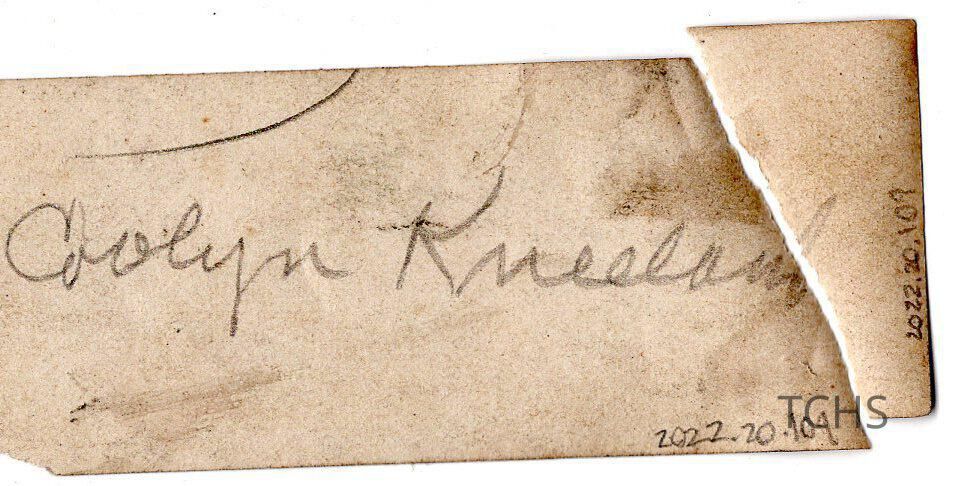 Kneeland
2022.20.109
TCHS
2022.20.109